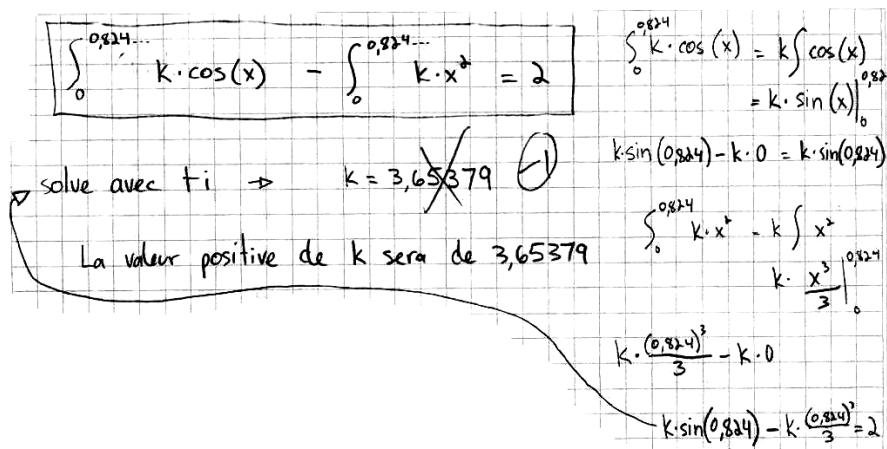 ∫₀^0,824... k·cos(x) - ∫₀^0,824... k·x² = 2
solve avec ti → k = 3,65379 -1
La valeur positive de k sera de 3,65379
∫₀^0,824 k·cos(x) = k∫cos(x)
= k·sin(x)|₀^0,82
k·sin(0,824) - k·0 = k·sin(0,824)
∫₀^0,824 k·x² - k∫x²
k·x³/3|₀^0,824
k·(0,824)³/3 - k·0
k·sin(0,824) - k·(0,824)³/3 = 2